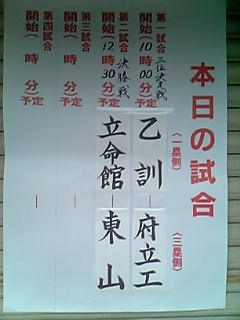 本日の試合
〈一塁側〉 〈三塁側〉
第一試合 三位決定戦
開始(10時00分)予定
乙訓 — 府立工
第二試合 決勝戦
開始(12時30分)予定
立命館 — 東山
第三試合
開始( 時 分)予定
—
第四試合
開始( 時 分)予定
—